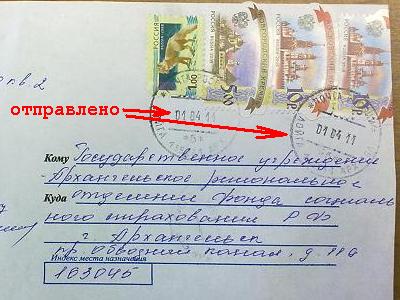 РОССИЯ
РОССИЯ
1.00
5.00
10р
10р
о кв. 2
отправлено
01 04 11
01 04 11
ЛОЙГА
Кому Государственное учреждение
Архангельское регионально е
Куда отделение Фонда социаль
ного страхования РФ
г Архангельск
пр. Обводный канал, д. 119
Индекс места назначения
163045